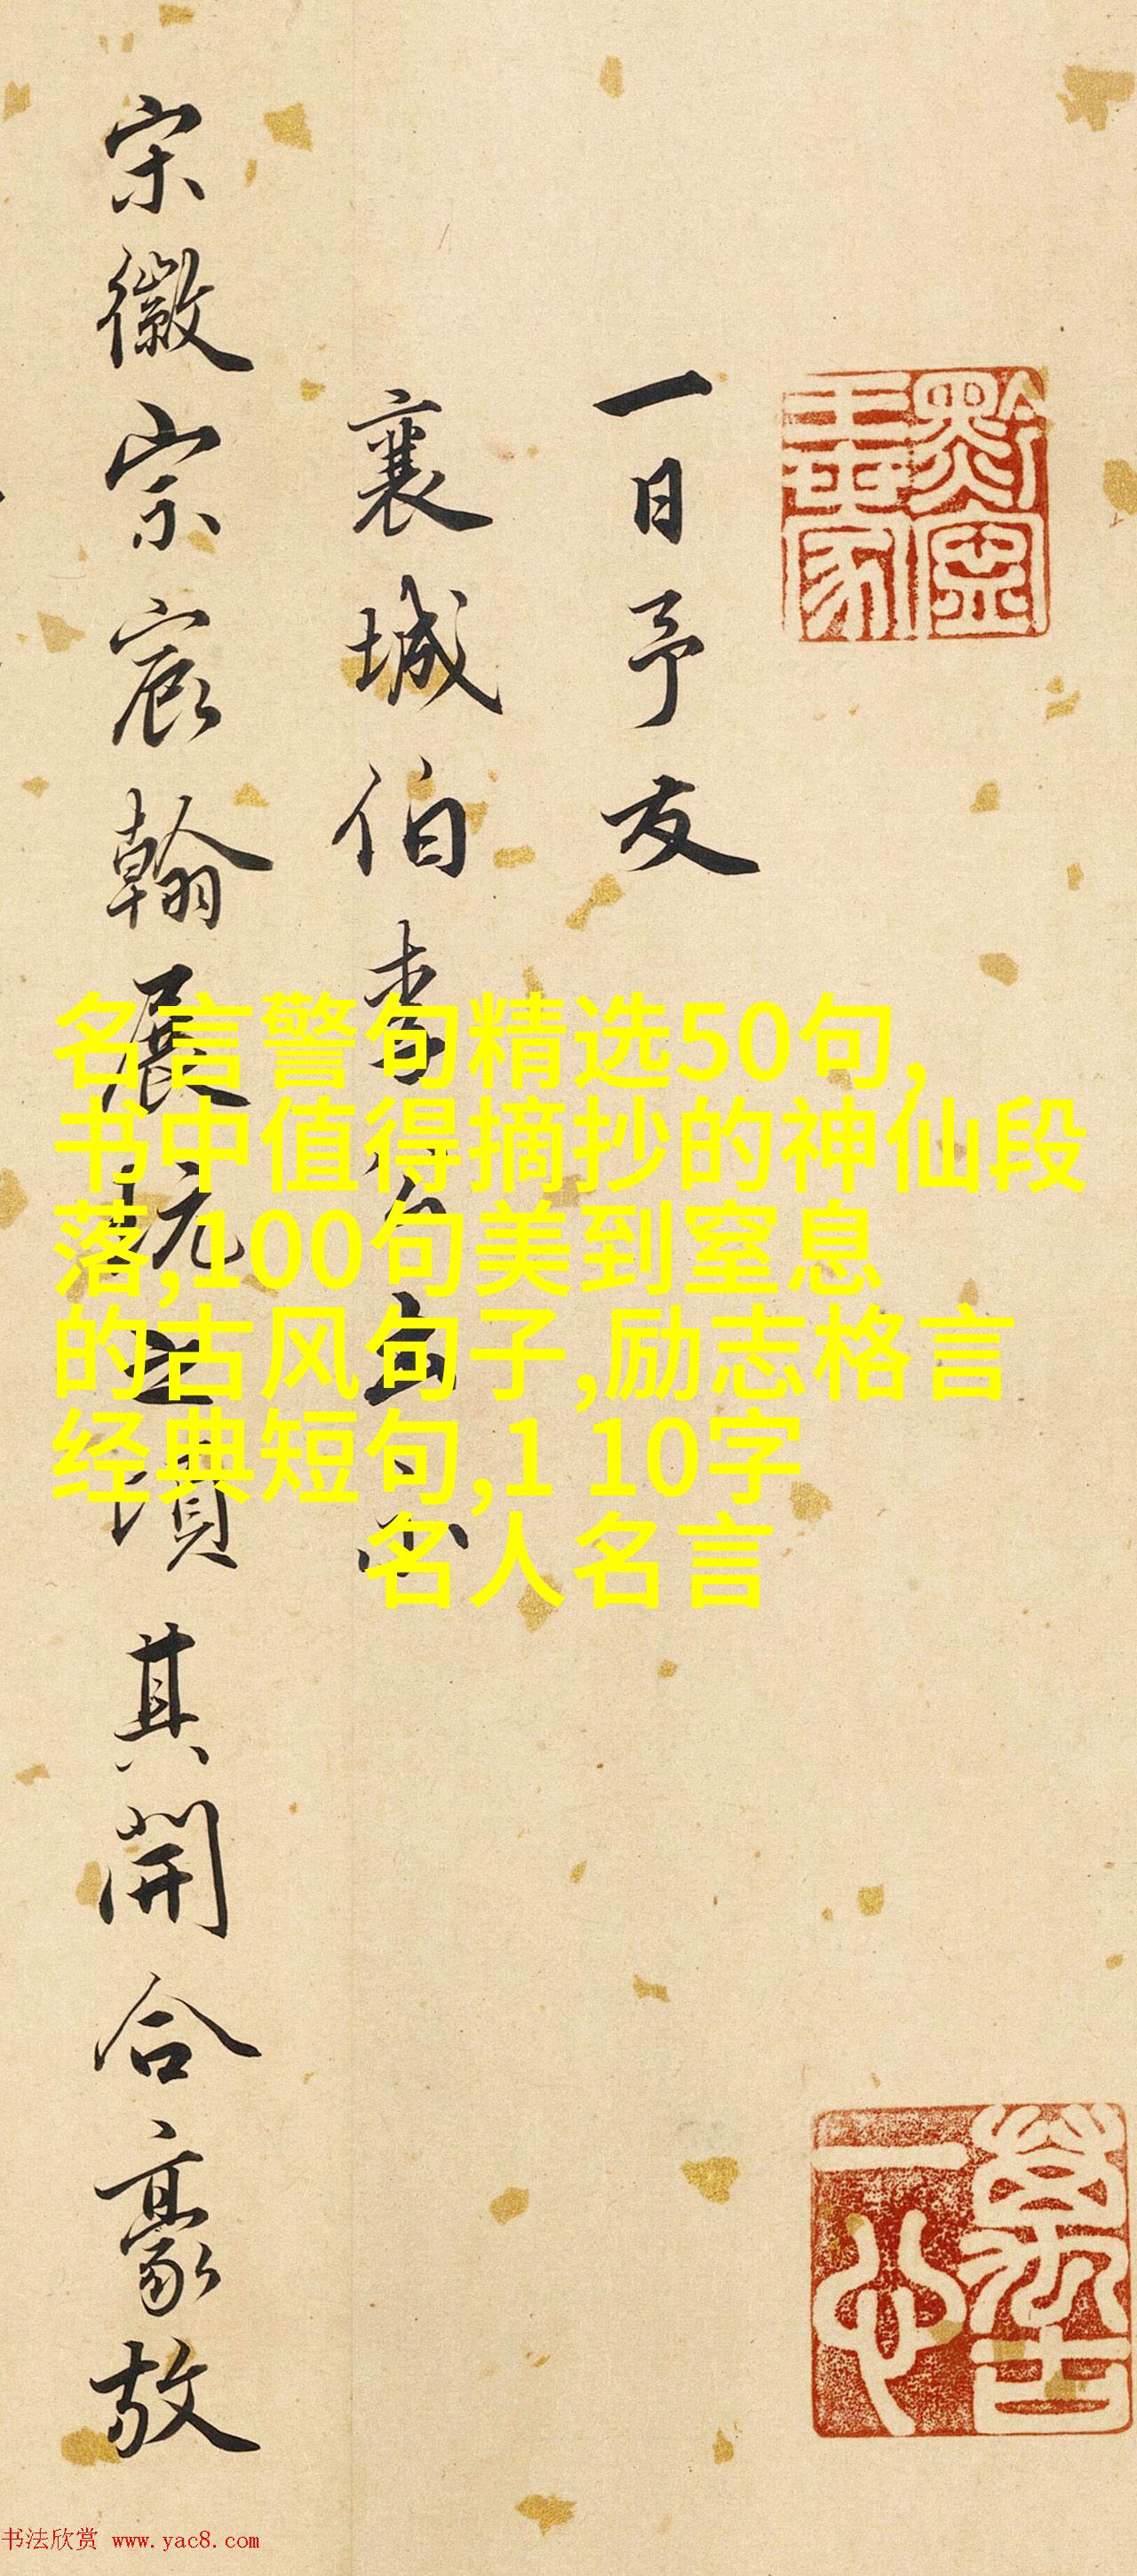 一日予友
襄城伯
宋徽宗宸翰展玩之頃其開合豪放
名言警句精选50句,
书中值得摘抄的神仙段
落,100句美到窒息
的古风句子,励志格言
经典短句,1 10字
名人名言
书法欣赏 www.yac8.com